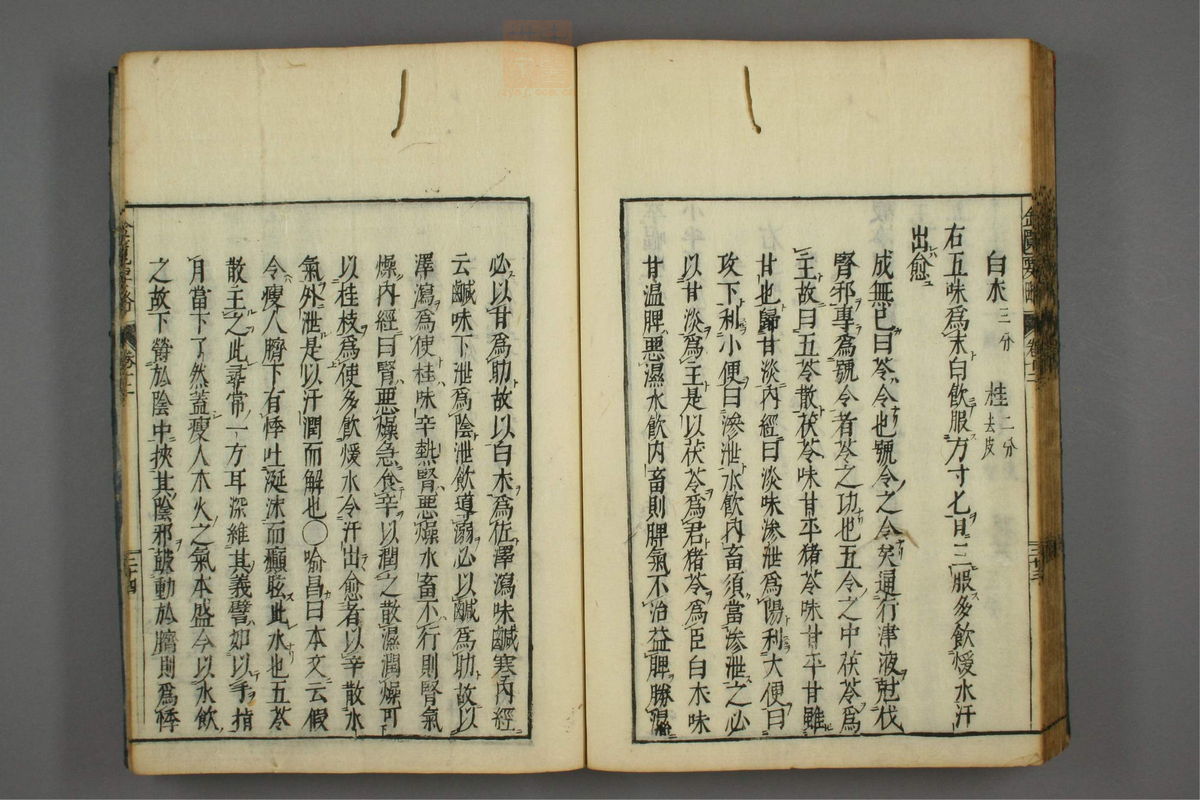 白朮三分　桂去皮二分
右五味爲末白飲服方寸匕日三服多飲煖水汗
出愈
成無己曰苓令也號令之令矣通行津液尅伐
腎邪專爲號令者苓之功也五令之中茯苓爲
主故曰五苓散茯苓味甘平猪苓味甘平甘雖
甘也歸甘淡內經曰淡味滲泄爲陽利大便曰
攻下利小便曰滲泄水飲內畜須當滲泄之必
以甘淡爲主是以茯苓爲君猪苓爲臣白朮味
甘温脾惡濕水飲內畜則脾氣不治益脾勝濕
必以甘爲助故以白朮爲佐澤瀉味鹹寒內經
云鹹味下泄爲陰泄飲導溺必以鹹爲助故以
澤瀉爲使桂味辛熱腎惡燥水畜不行則腎氣
燥內經曰腎惡燥急食辛以潤之散濕潤燥可
以桂枝爲使多飲煖水令汗出愈者以辛散水
氣外泄是以汗潤而解也○喻昌曰本文云假
令瘦人臍下有悸吐涎沫而癲眩此水也五苓
散主之此尋常一方耳深維其義譬如以手指
月當下了然蓋瘦人木火之氣本盛今以水飲
之故下鬱於陰中挾其陰邪鼓動於臍則爲悸
金匱要略
卷十二
三十四